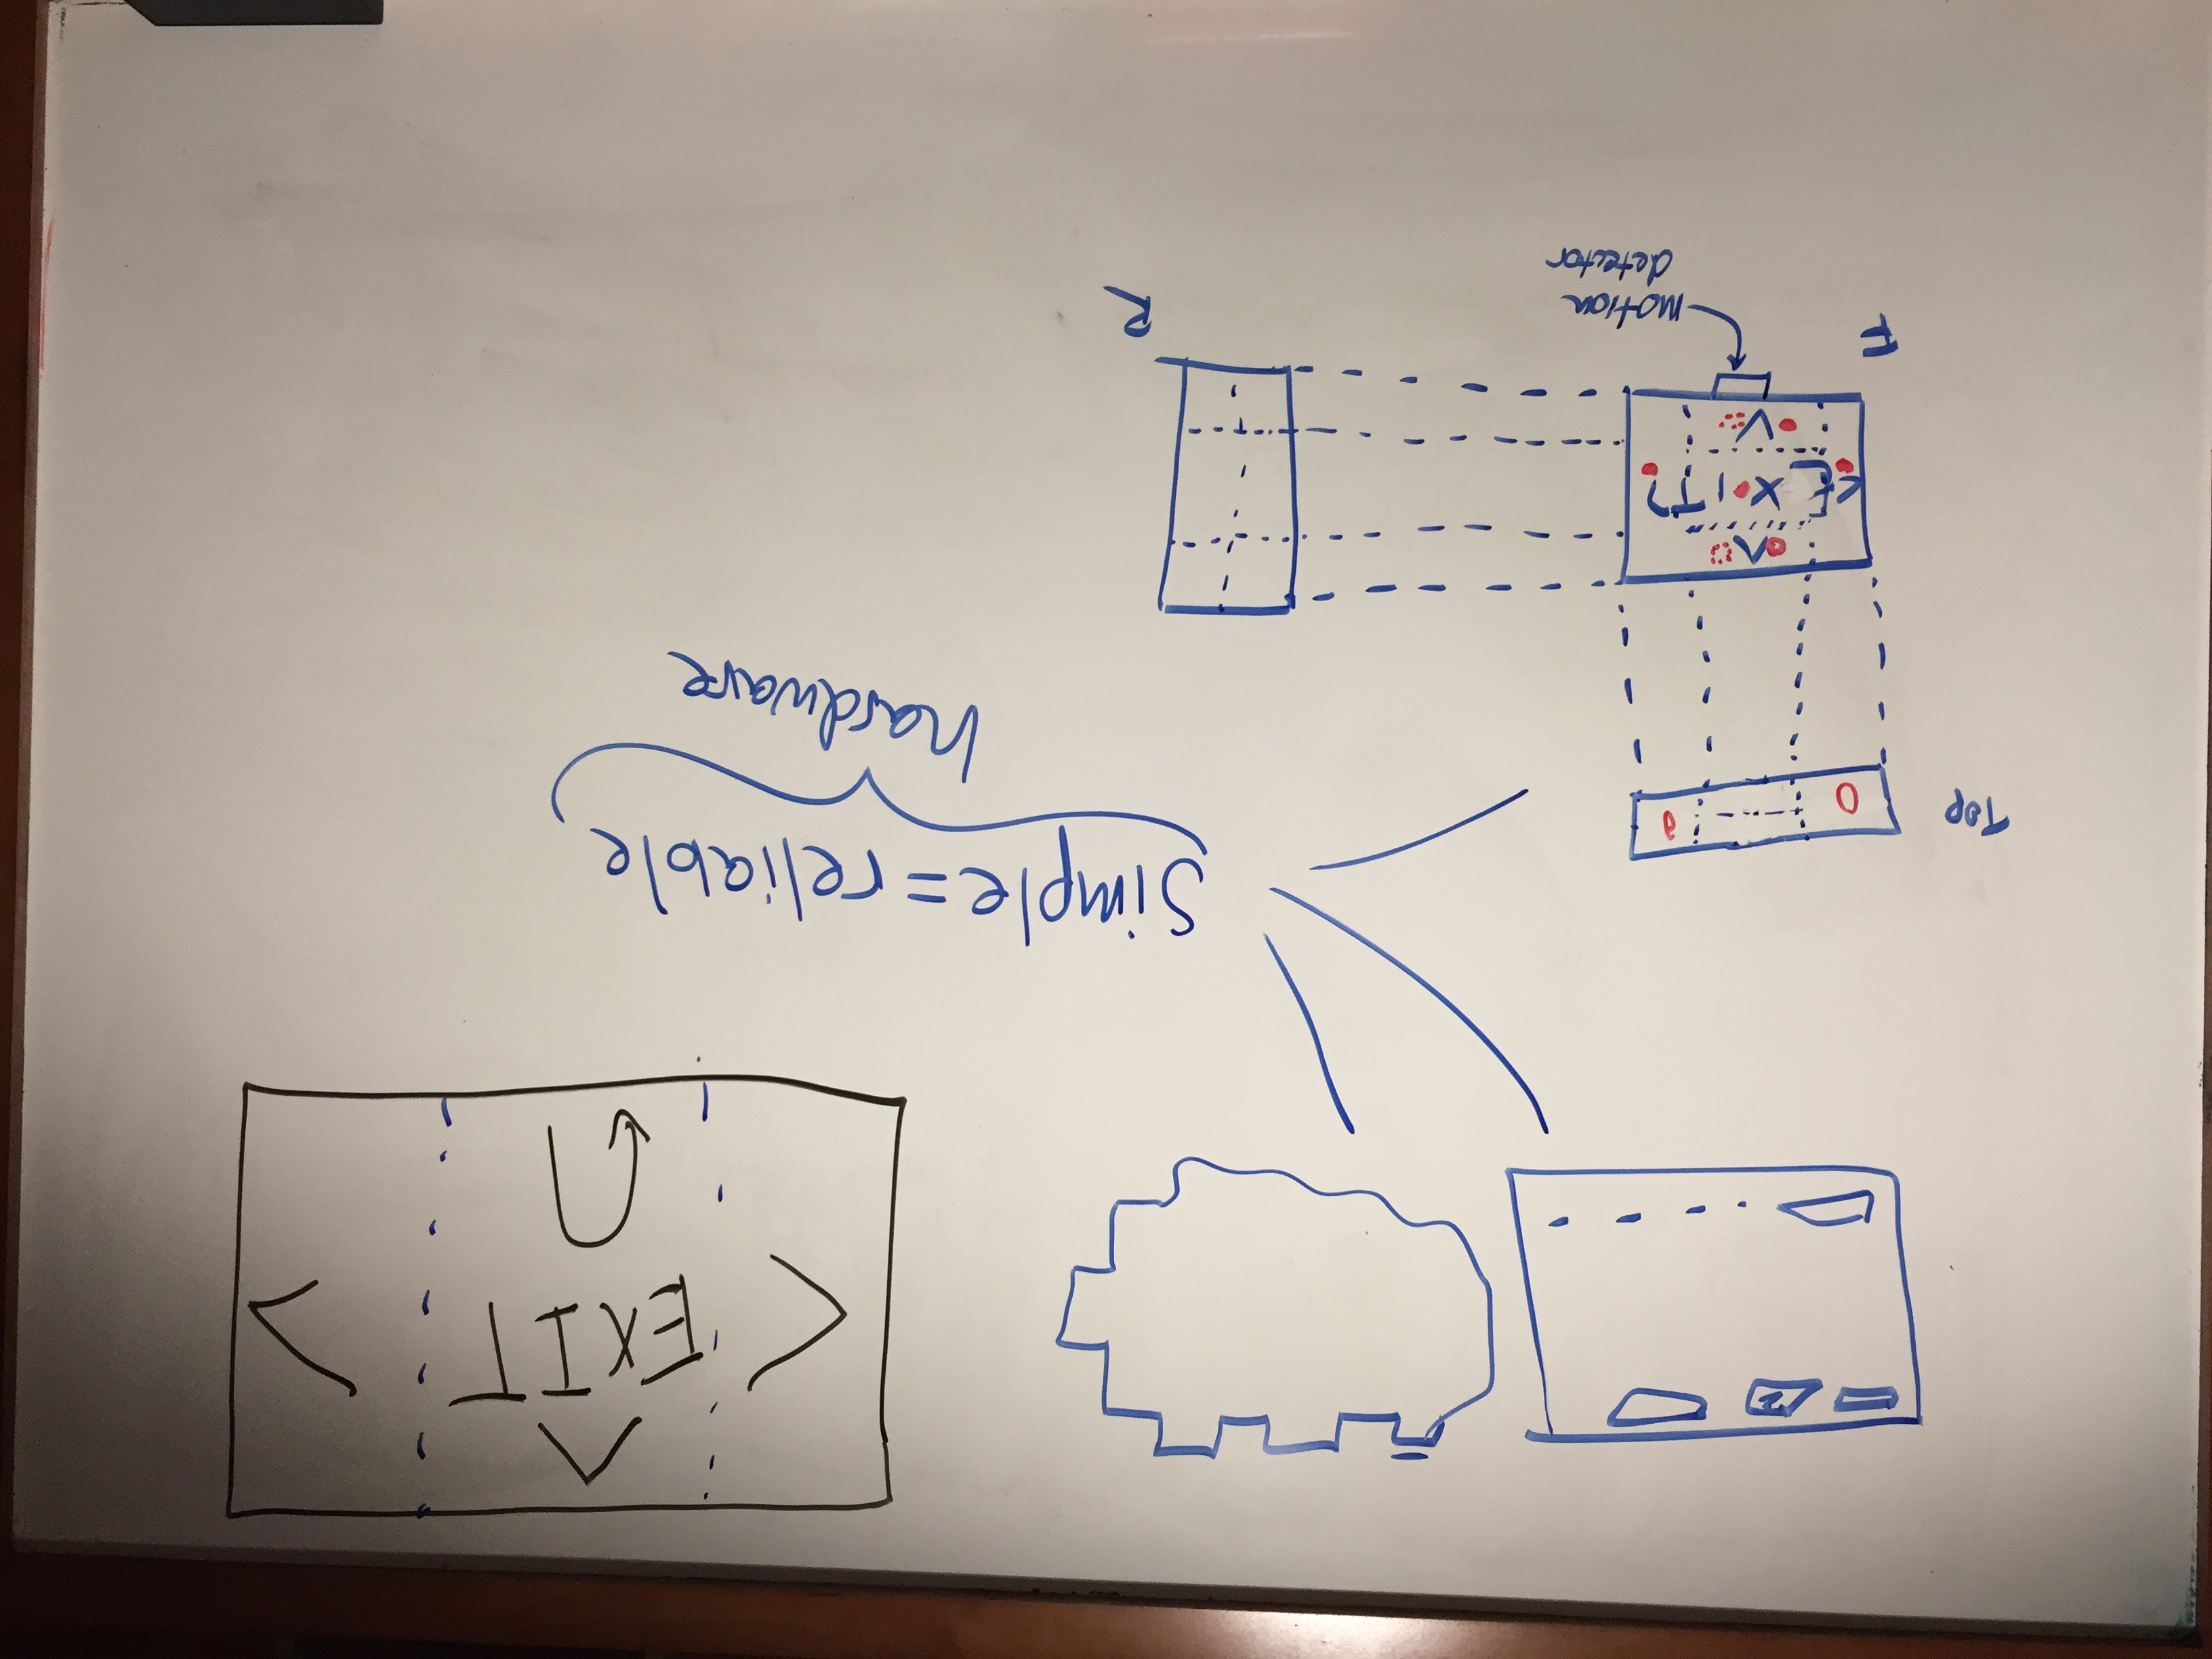 EXIT
simple=reliable
hardware
Top
<EXIT?
F
R
motion
detector